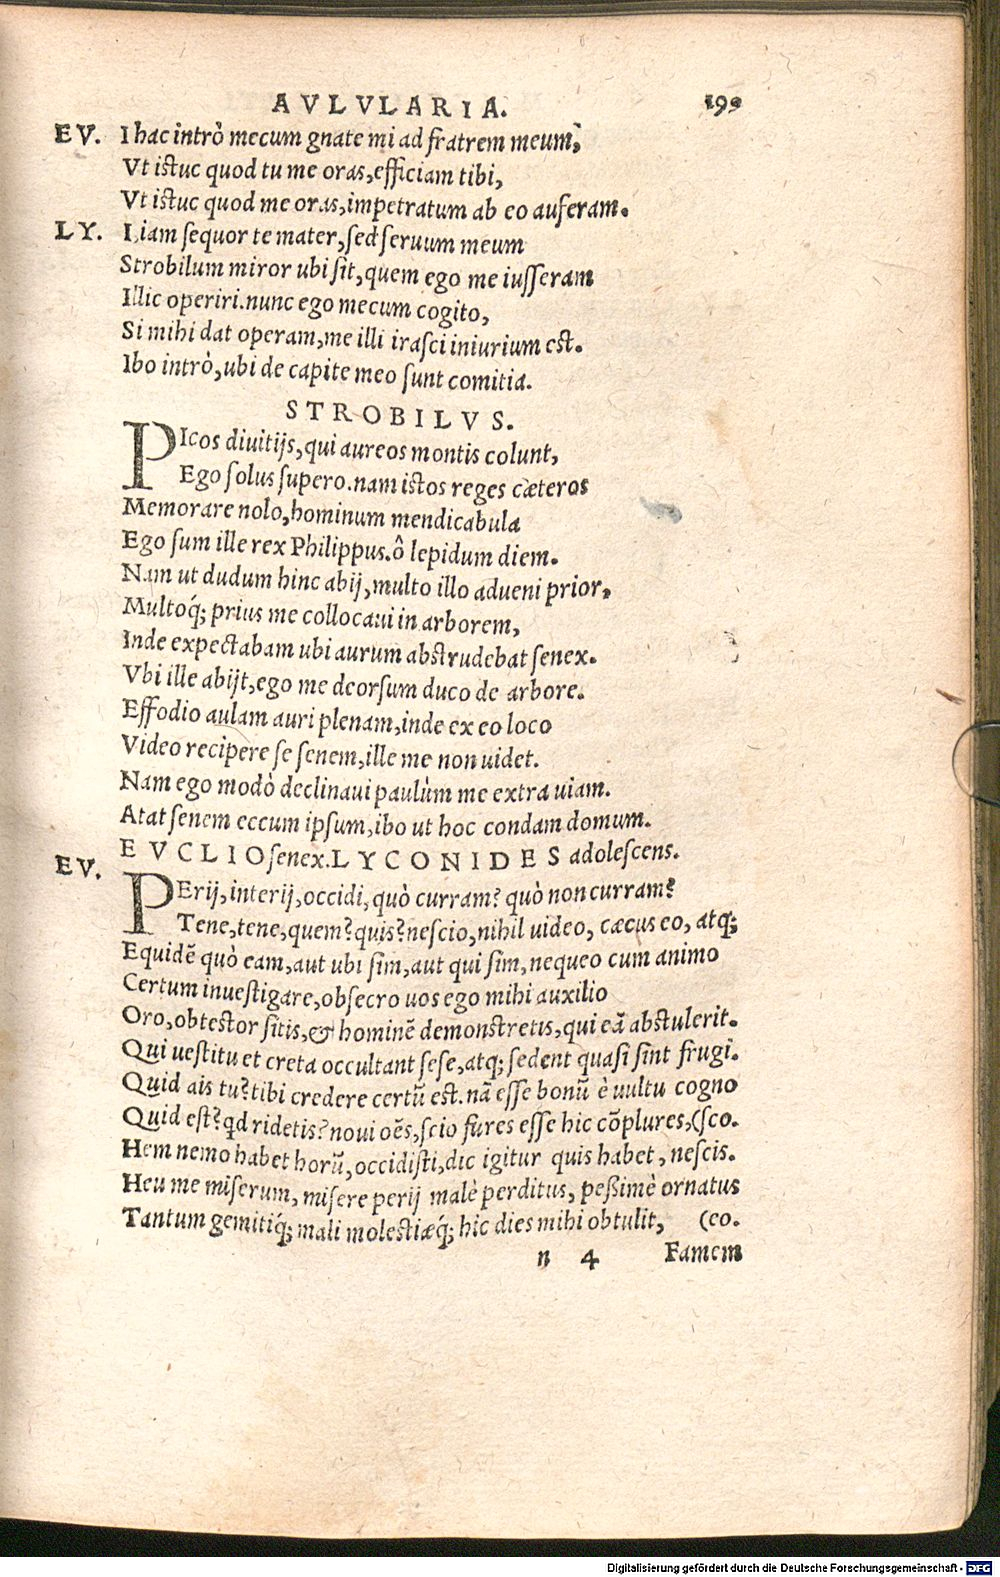 AVLVLARIA. 199
EV. I hac intrò mecum gnate mi ad fratrem meum,
Vt istuc quod tu me oras, efficiam tibi,
Vt istuc quod me oras, impetratum ab eo auferam.
LY. I, iam sequor te mater, sed seruum meum
Strobilum miror ubi sit, quem ego me iusseram
Illic operiri. nunc ego mecum cogito,
Si mihi dat operam, me illi irasci iniurium est.
Ibo intrò, ubi de capite meo sunt comitia.
STROBILVS.
PIcos diuitijs, qui aureos montis colunt,
Ego solus supero. nam istos reges cæteros
Memorare nolo, hominum mendicabula
Ego sum ille rex Philippus. ô lepidum diem.
Nam ut dudum hinc abij, multo illo adueni prior,
Multoq́; prius me collocaui in arborem,
Inde expectabam ubi aurum abstrudebat senex.
Vbi ille abijt, ego me deorsum duco de arbore.
Effodio aulam auri plenam, inde ex eo loco
Video recipere se senem, ille me non uidet.
Nam ego modò declinaui paulùm me extra uiam.
Atat senem eccum ipsum, ibo ut hoc condam domum.
EVCLIO senex. LYCONIDES adolescens.
EV. PErij, interij, occidi, quò curram? quò non curram?
Tene, tene, quem? quis? nescio, nihil uideo, cæcus eo, atq;
Equidē quò eam, aut ubi sim, aut qui sim, nequeo cum animo
Certum inuestigare, obsecro uos ego mihi auxilio
Oro, obtestor sitis, & hominē demonstretis, qui eā abstulerit.
Qui uestitu et creta occultant sese, atq; sedent quasi sint frugi.
Quid ais tu? tibi credere certū est. nā esse bonū è uultu cogno
Quid est? qd ridetis? noui oēs, scio fures esse hic cōplures, (sco.
Hem nemo habet horū, occidisti, dic igitur quis habet, nescis.
Heu me miserum, misere perij malè perditus, peßimè ornatus
Tantum gemitiq́; mali molestiæq́; hic dies mihi obtulit, (eo.
n 4 Famem
Digitalisierung gefördert durch die Deutsche Forschungsgemeinschaft - DFG